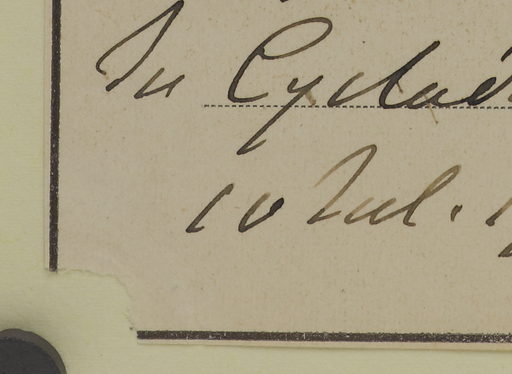 In Cyclad
10 Jul. 1